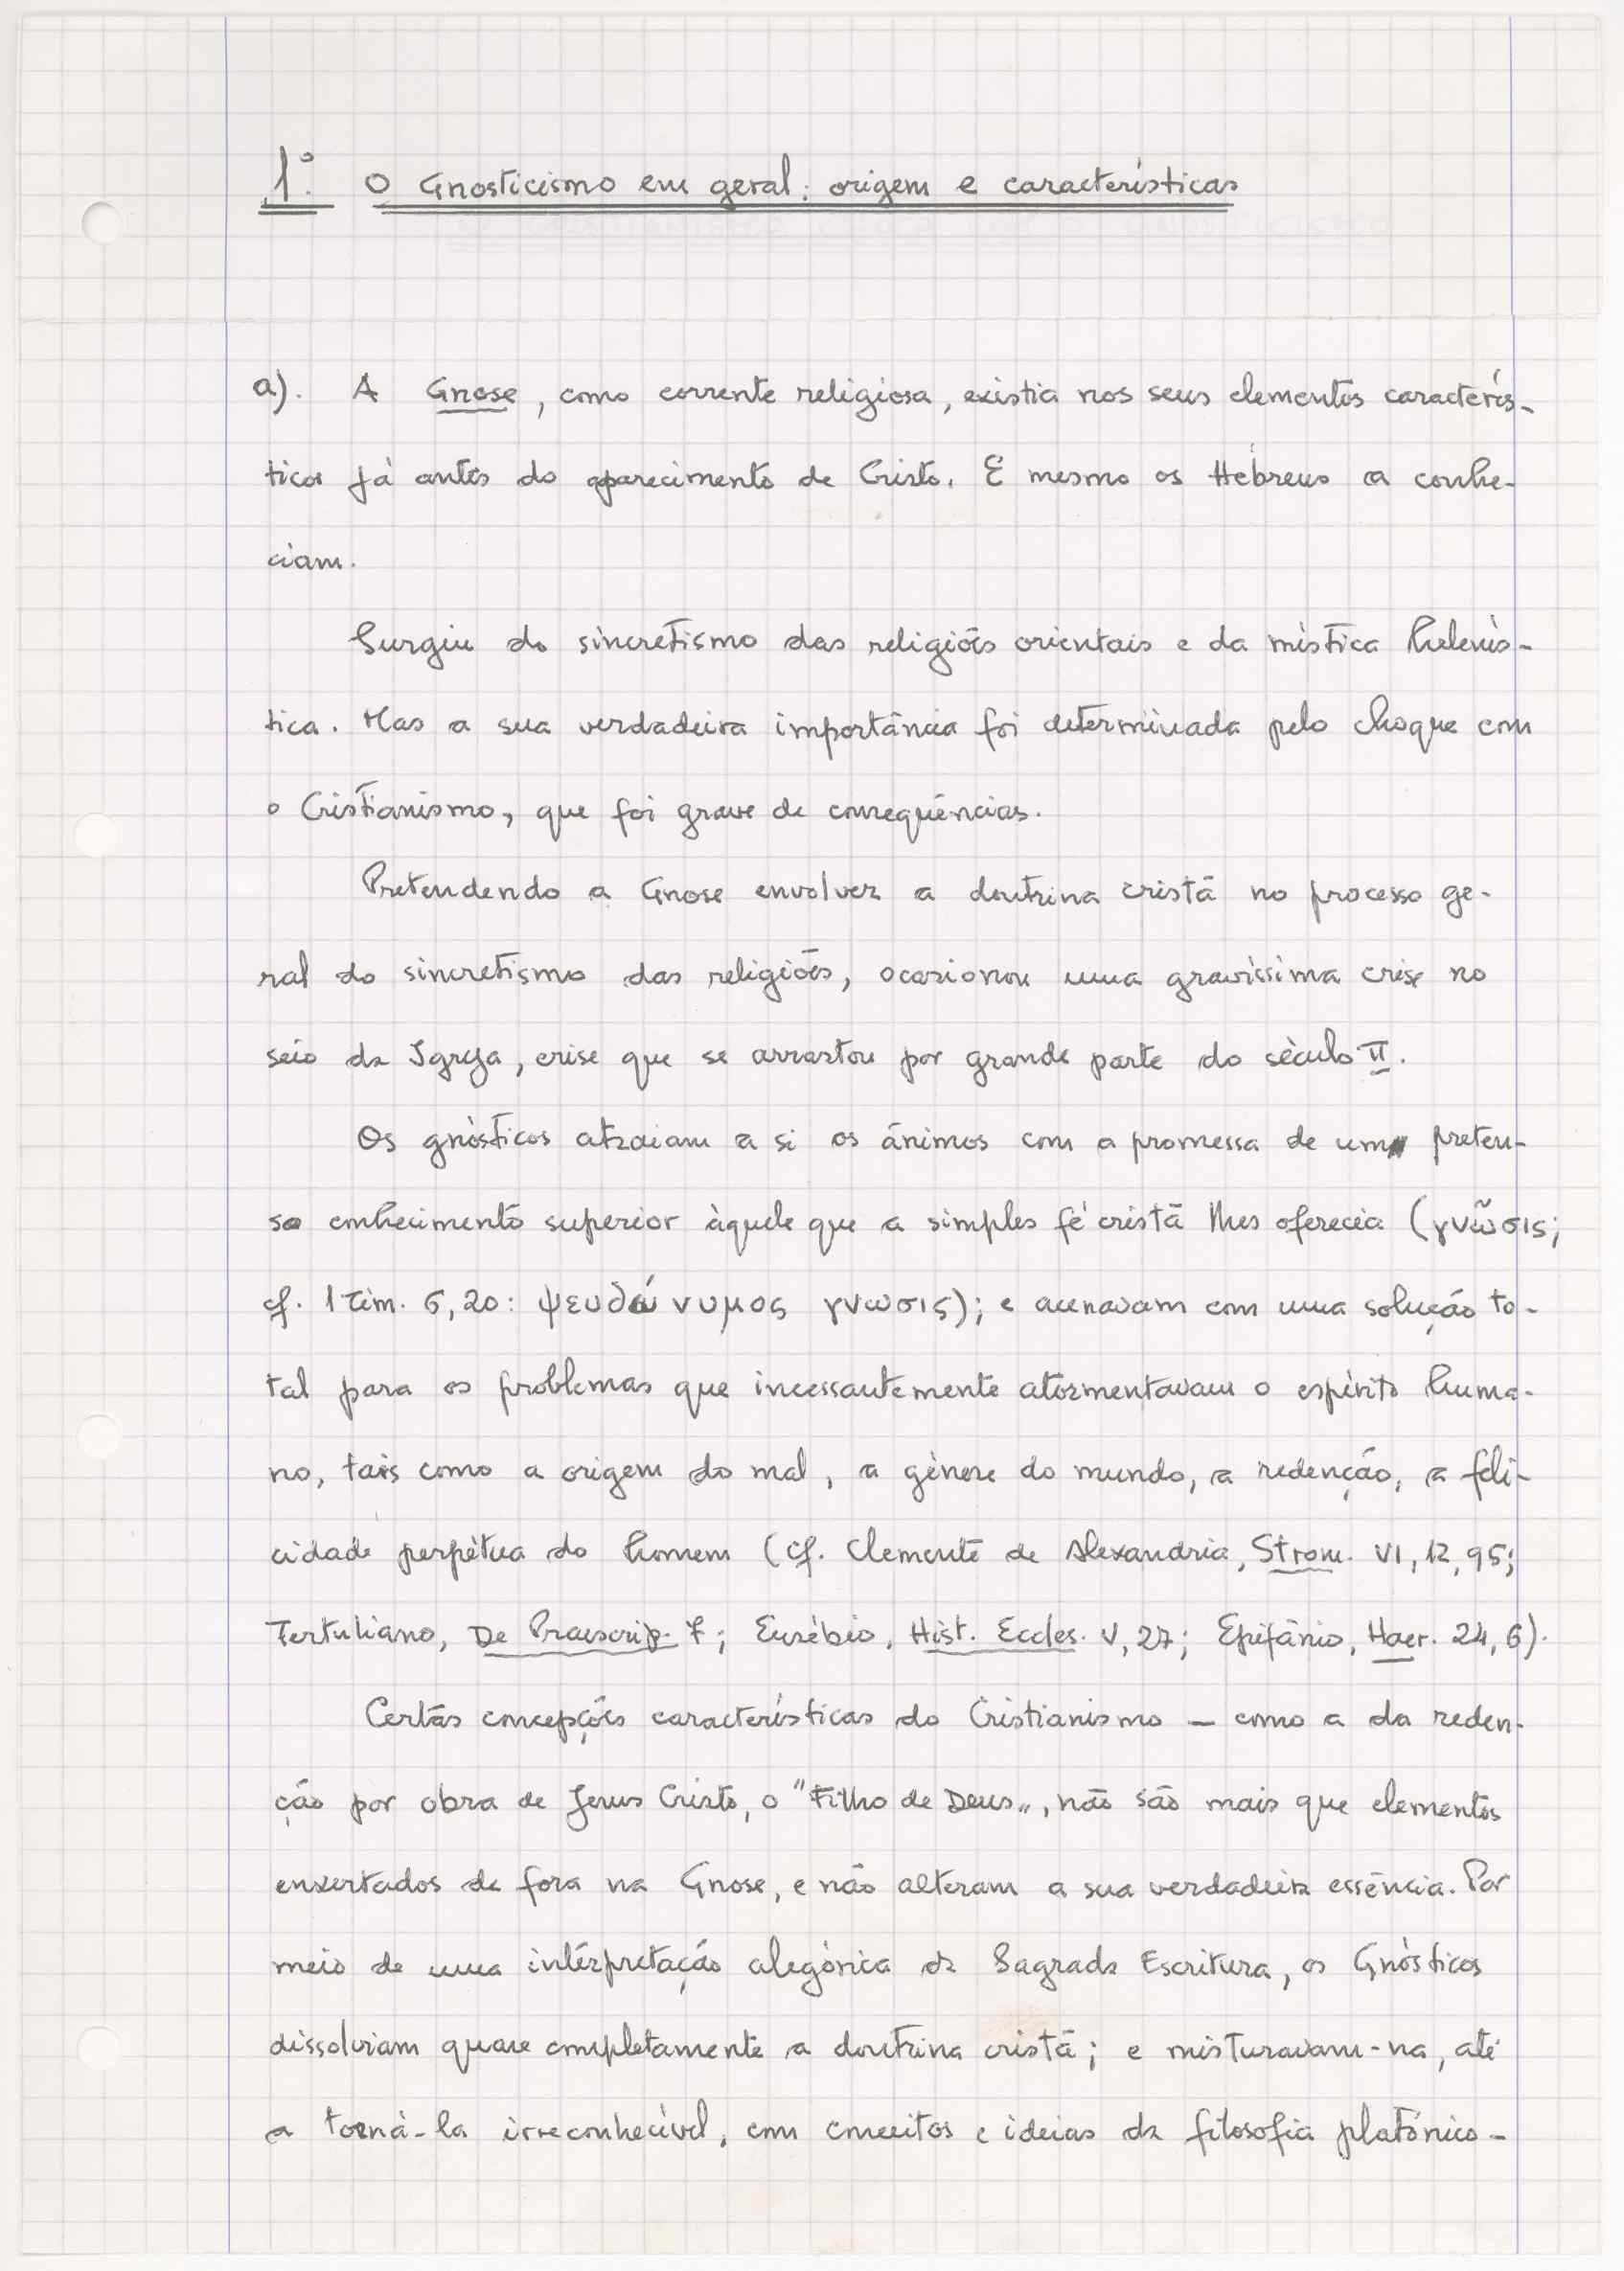 1º. O Gnosticismo em geral: origem e características
a). A Gnose, como corrente religiosa, existia nos seus elementos caracterís-
ticos já antes do aparecimento de Cristo. E mesmo os Hebreus a conhe-
ciam.
Surgiu do sincretismo das religiões orientais e da mística helenís-
tica. Mas a sua verdadeira importância foi determinada pelo choque com
o Cristianismo, que foi grave de conseqüências.
Pretendendo a Gnose envolver a doutrina cristã no processo ge-
ral do sincretismo das religiões, ocasionou uma gravíssima crise no
seio da Igreja, crise que se arrastou por grande parte do século II.
Os gnósticos atraiam a si os ânimos com a promessa de um preten-
so conhecimento superior àquele que a simples fé cristã lhes oferecia (γνῶσις;
cf. 1 Tim. 6, 20: ψευδώνυμος γνωσις); e acenavam com uma solução to-
tal para os problemas que incessantemente atormentavam o espírito huma-
no, tais como a origem do mal, a génese do mundo, a redenção, a feli-
cidade perpétua do homem (cf. Clemente de Alexandria, Strom. VI, 12, 95;
Tertuliano, De Praescrip. 7; Eusébio, Hist. Eccles. V, 27; Epifânio, Haer. 24, 6).
Certas concepções características do Cristianismo — como a da reden-
ção por obra de Jesus Cristo, o "Filho de Deus", não são mais que elementos
enxertados de fora na Gnose, e não alteram a sua verdadeira essência. Por
meio de uma interpretação alegórica da Sagrada Escritura, os Gnósticos
dissolviam quase completamente a doutrina cristã; e misturavam-na, até
a torná-la irreconhecível, com conceitos e ideias da filosofia platónico-